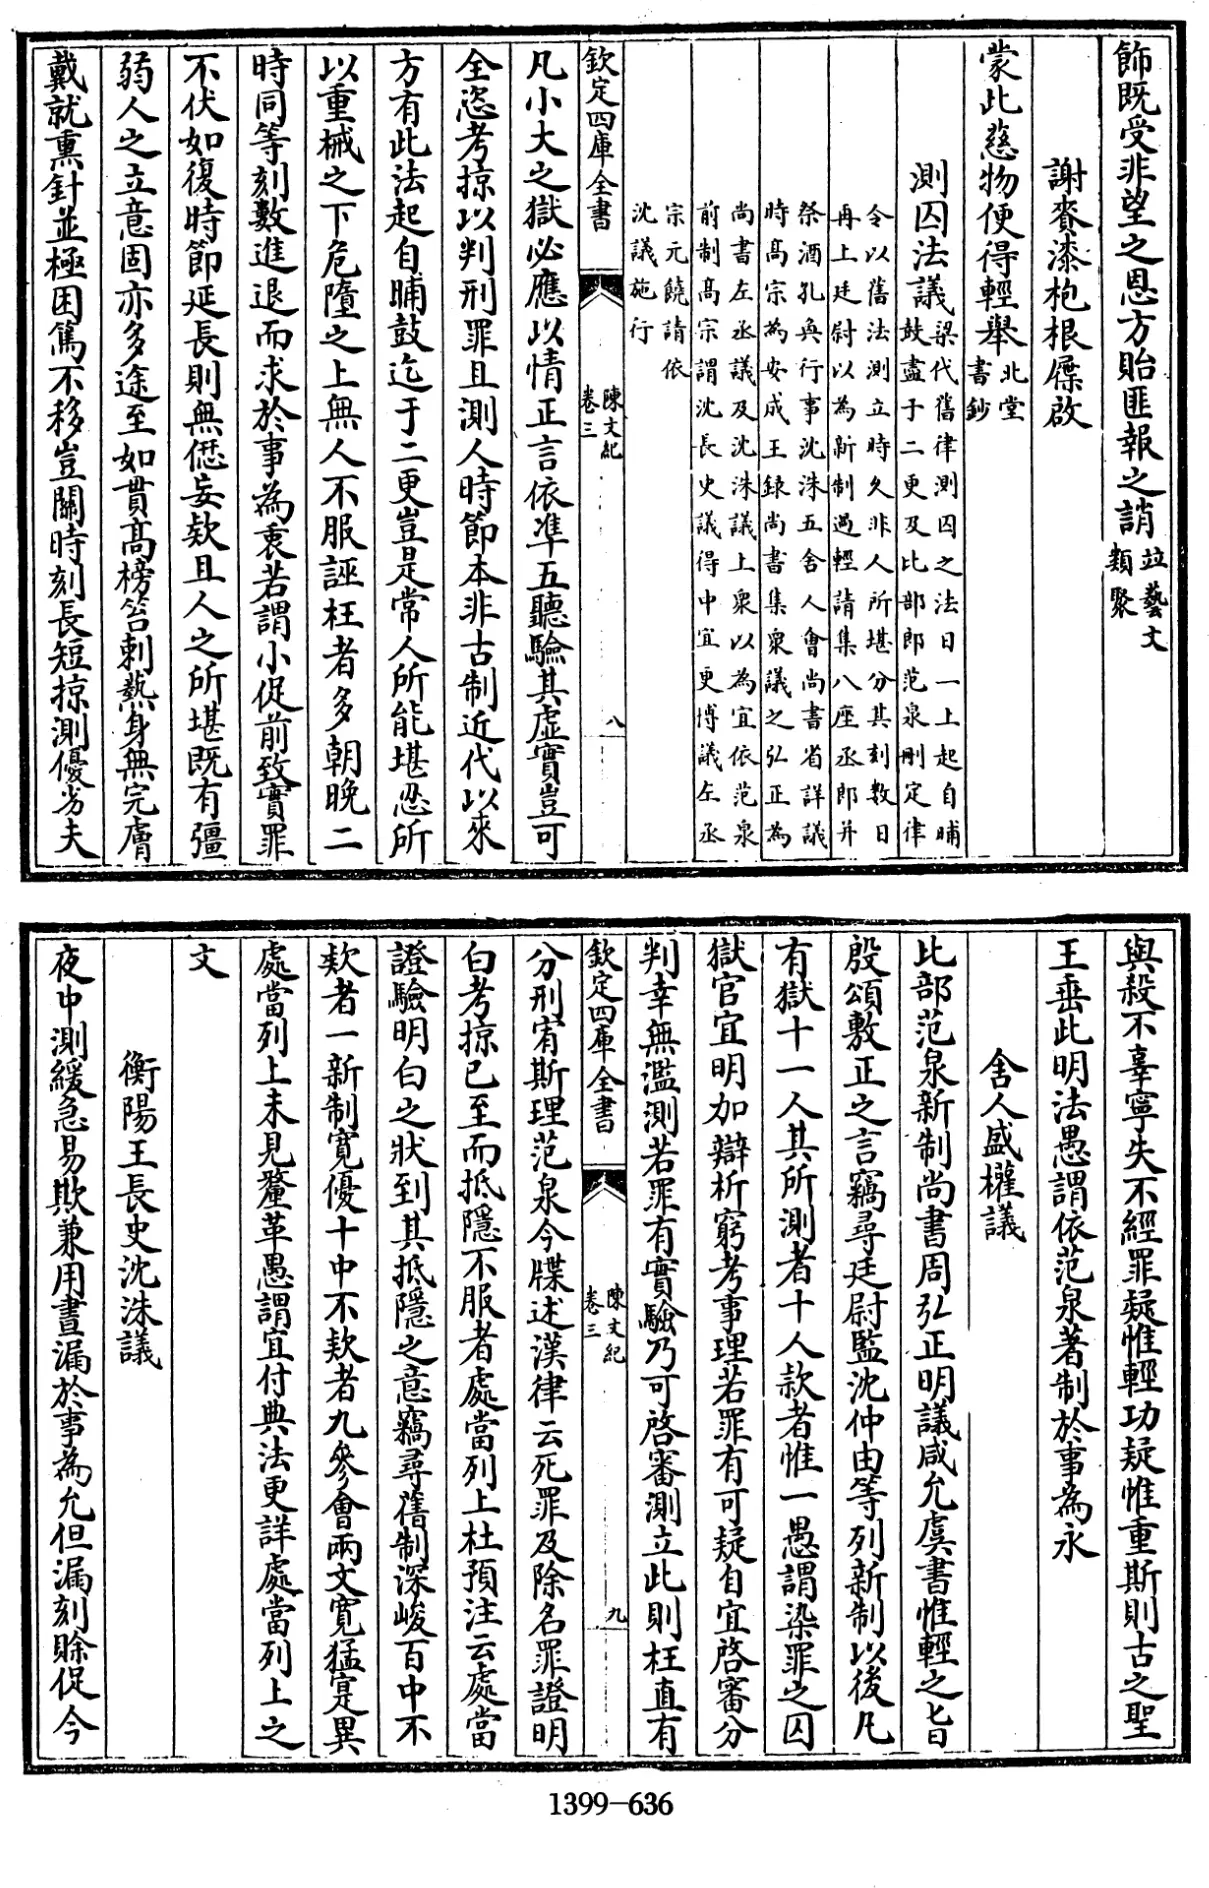 飾既受非望之恩方貽匪報之誚竝藝文
類聚
謝賚漆枹根屧啟
蒙此慈物便得輕舉北堂
書鈔
測囚法議梁代舊律測囚之法日一上起自晡
鼓盡于二更及比部郎范泉刪定律
令以舊法測立時久非人所堪分其刻數日
再上廷尉以為新制過輕請集八座丞郎并
祭酒孔奐行事沈洙五舍人會尚書省詳議
時髙宗為安成王錄尚書集衆議之弘正為
尚書左丞議及沈洙議上衆以為宜依范泉
前制髙宗謂沈長史議得中宜更博議左丞
宗元饒請依
沈議施行
欽定四庫全書
陳文紀
卷三
八
凡小大之獄必應以情正言依準五聽驗其虛實豈可
全恣考掠以判刑罪且測人時節本非古制近代以來
方有此法起自晡鼓迄于二更豈是常人所能堪忍所
以重械之下危墮之上無人不服誣枉者多朝晚二
時同等刻數進退而求於事為衷若謂小促前致實罪
不伏如復時節延長則無愆妄欵且人之所堪既有彊
弱人之立意固亦多途至如貫髙榜笞刺爇身無完膚
戴就熏針並極困篤不移豈關時刻長短掠測優劣夫
與殺不辜寧失不經罪疑惟輕功疑惟重斯則古之聖
王垂此明法愚謂依范泉著制於事為永
舍人盛權議
比部范泉新制尚書周弘正明議咸允虞書惟輕之㫖
殷頌敷正之言竊尋廷尉監沈仲由等列新制以後凡
有獄十一人其所測者十人款者惟一愚謂染罪之囚
獄官宜明加辯析窮考事理若罪有可疑自宜啓審分
判幸無濫測若罪有實驗乃可啓審測立此則枉直有
欽定四庫全書
陳文紀
卷三
九
分刑宥斯理范泉今牒述漢律云死罪及除名罪證明
白考掠已至而抵隱不服者處當列上杜預注云處當
證驗明白之狀到其抵隱之意竊尋舊制深峻百中不
欵者一新制寛優十中不欵者九參會兩文寛猛寔異
處當列上未見釐革愚謂宜付典法更詳處當列上之
文
衡陽王長史沈洙議
夜中測緩急易欺兼用晝漏於事為允但漏刻賒促今
1399—636